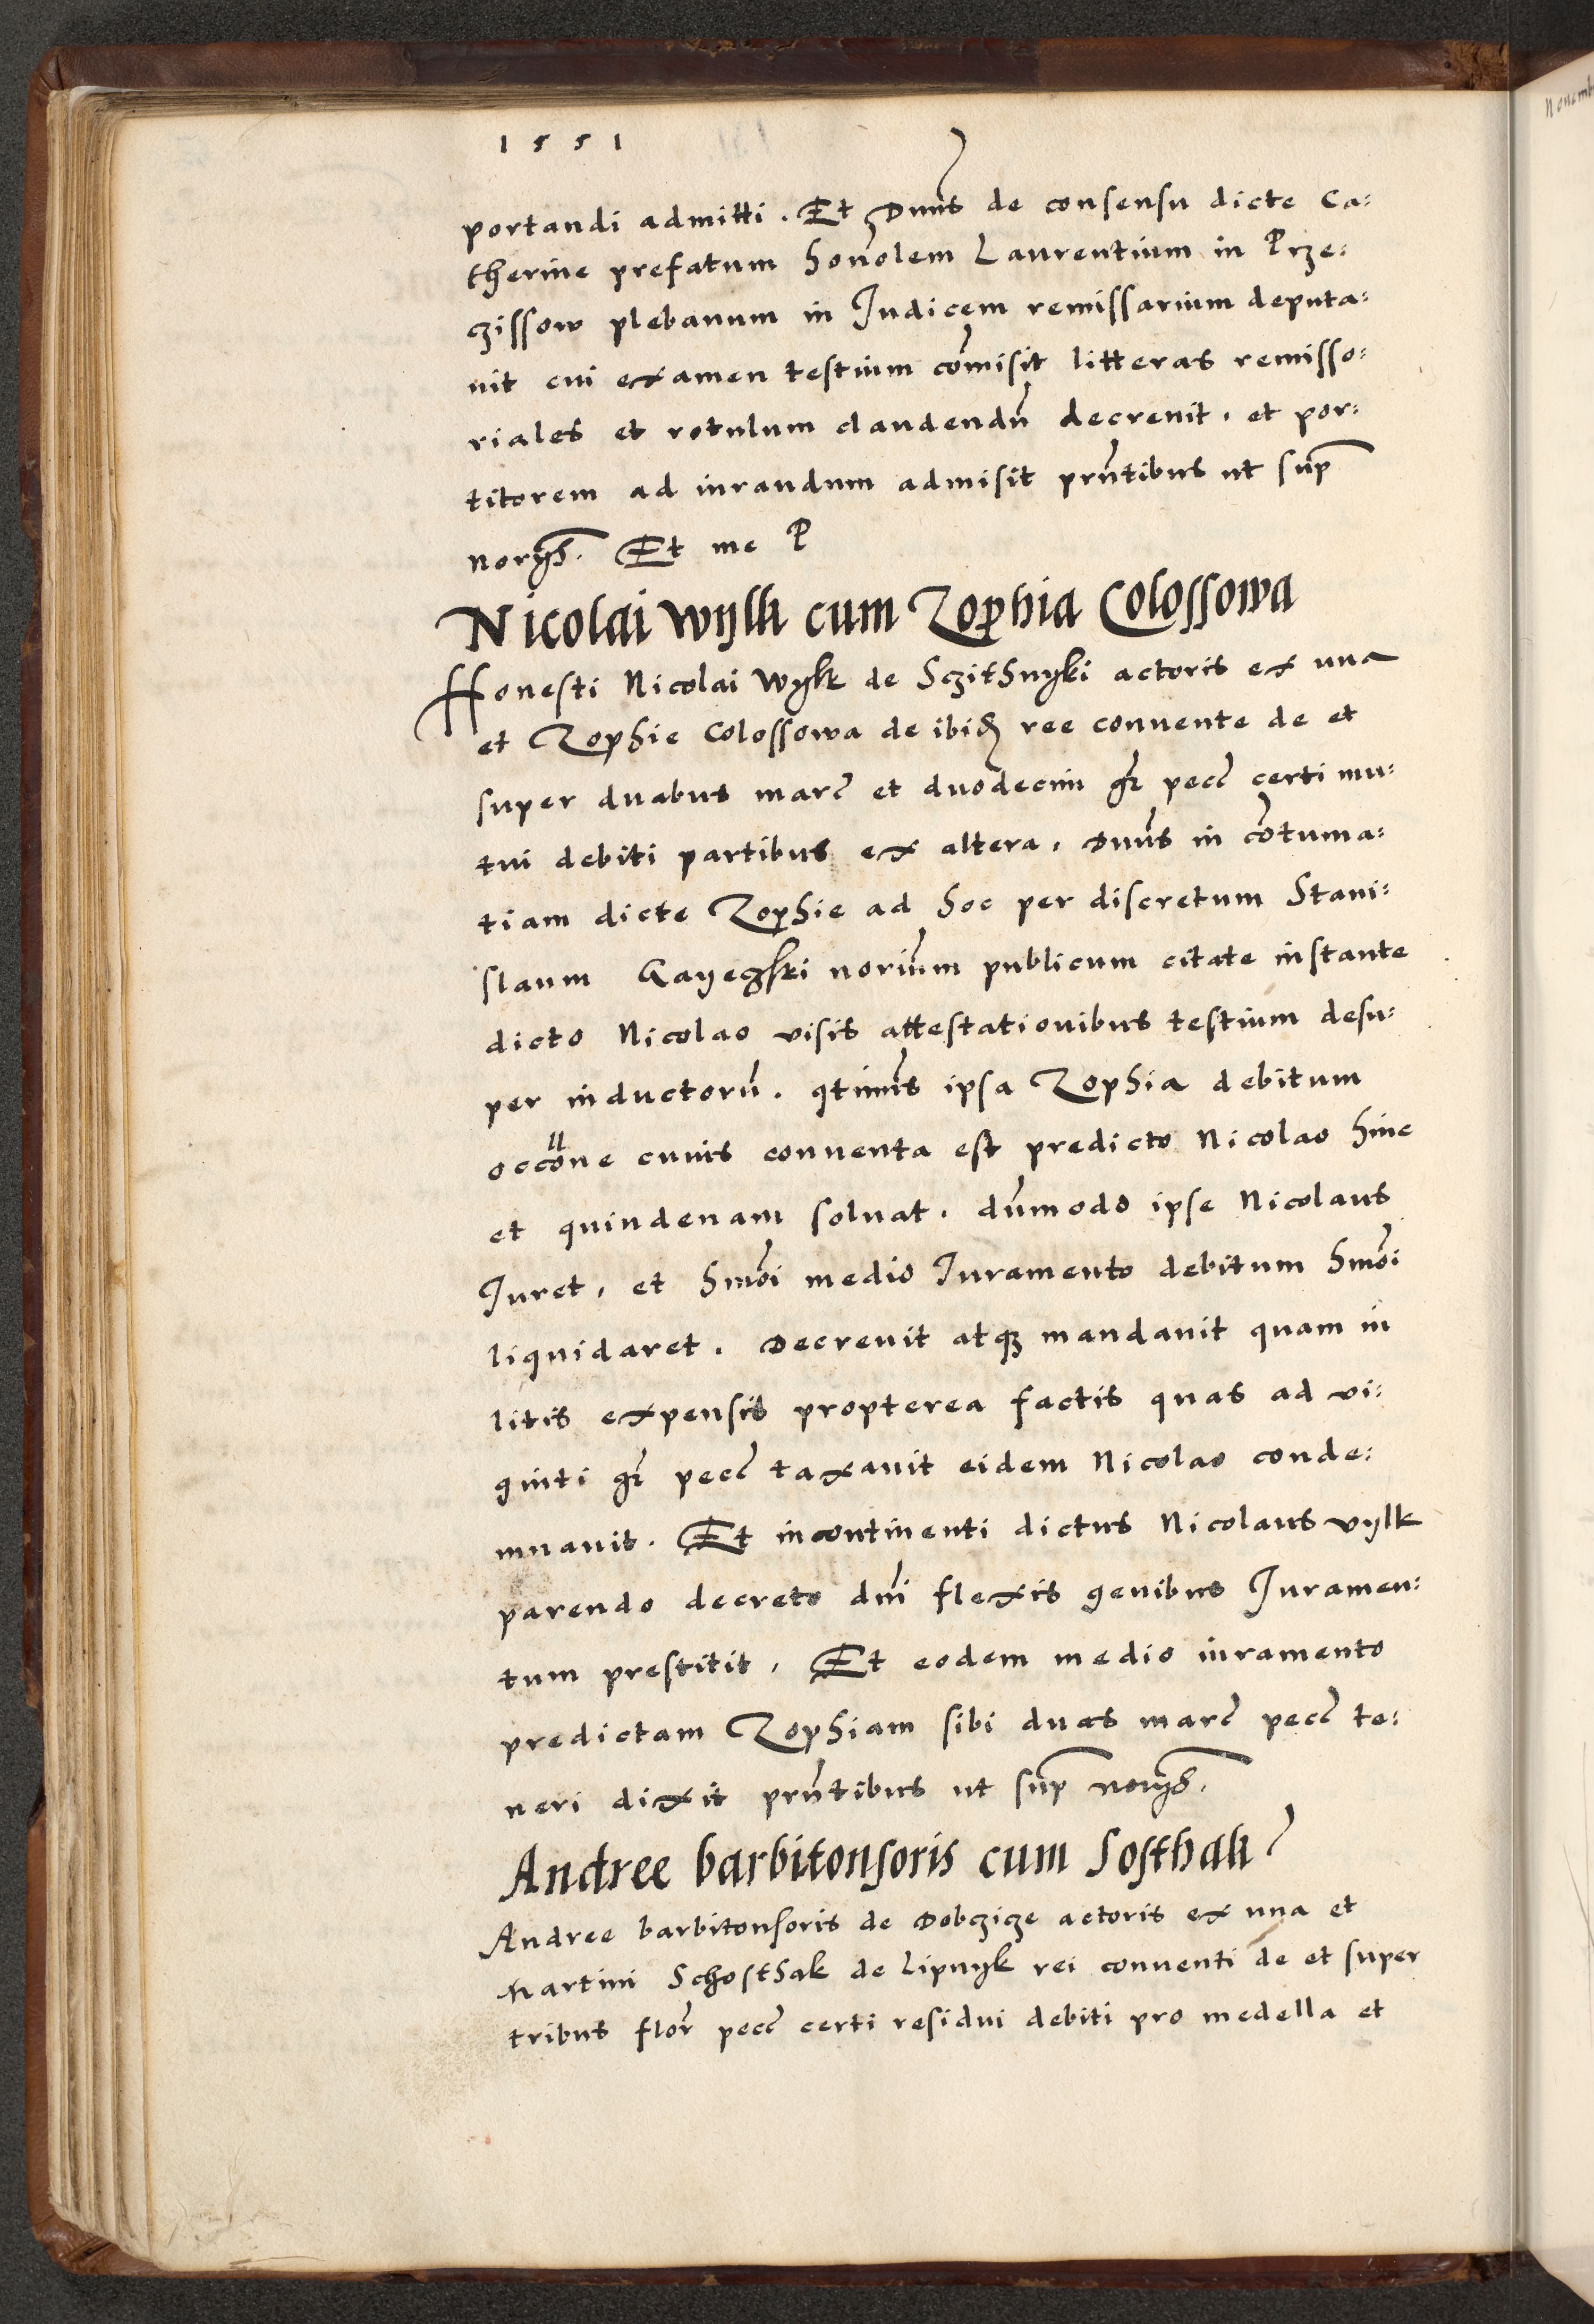 1551
portandi admitti. Et Dnus de consensu dicte Ca:
therine prefatum honolem Laurentium in Prze:
czissow plebanum in Iudicem remissarium deputa:
uit cui examen testium comisit litteras remisso:
riales et rotulum claudendu decreuit, et por:
titorem ad iurandum admisit prntibus ut sup
norijs. Et me P
Nicolai Wylk cum Zophia Colossowa
Honesti Nicolai Wylk de Sczithnyki actoris ex una
et Zophie Colossowa de ibid ree conuente de et
super duabus marc et duodecim gr pecc certi mu:
tui debiti partibus ex altera, Dnus in cotuma:
tiam dicte Zophie ad hoc per discretum Stani:
slaum Gayeczski norium publicum citate instante
dicto Nicolao visis attestationibus testium desu:
per inductoru. qtinus ipsa Zophia debitum
occone cuius conuenta est predicto Nicolao hinc
et quindenam soluat. dumodo ipse Nicolaus
Iuret, et hmoi medio Iuramento debitum hmoi
liquidaret. Decreuit atq mandauit quam in
litis expensis propterea factis quas ad vi:
ginti gr pecc taxauit eidem Nicolao conde:
mnauit. Et incontinenti dictus Nicolaus vylk
parendo decreto dni flexis genibus Iuramen:
tum prestitit, Et eodem medio iuramento
predictam Zophiam sibi duas marc pecc te:
neri dixit prntibus ut sup norijs.
Andree barbitonsoris cum Sosthak
Andree barbitonsoris de Dobczicze actoris ex una et
Martini Schosthak de Lipnyk rei conuenti de et super
tribus flor pecc certi residui debiti pro medella et